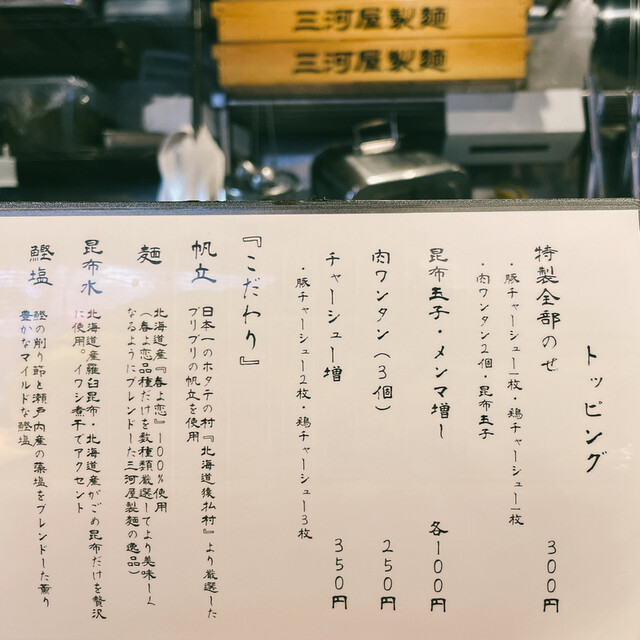 三河屋製麺
三河屋製麺
トッピング
特製全部のせ 300円
・豚チャーシュー一枚・鶏チャーシュー一枚
・肉ワンタン2個・昆布玉子
昆布玉子・メンマ増し 各100円
肉ワンタン(3個) 250円
チャーシュー増 350円
・豚チャーシュー2枚・鶏チャーシュー3枚
『こだわり』
帆立
日本一のホタテの村『北海道猿払村』より厳選した
プリプリの帆立を使用
麺
北海道産『春よ恋』100%使用
(春よ恋品種だけを数種類厳選してより美味しく
なるようにブレンドした三河屋製麺の逸品)
昆布水
北海道産羅臼昆布・北海道産がごめ昆布だけを贅沢
に使用。イワシ煮干でアクセント
鰹塩
鰹の削り節と瀬戸内産の藻塩をブレンドした薫り
豊かなマイルドな鰹塩